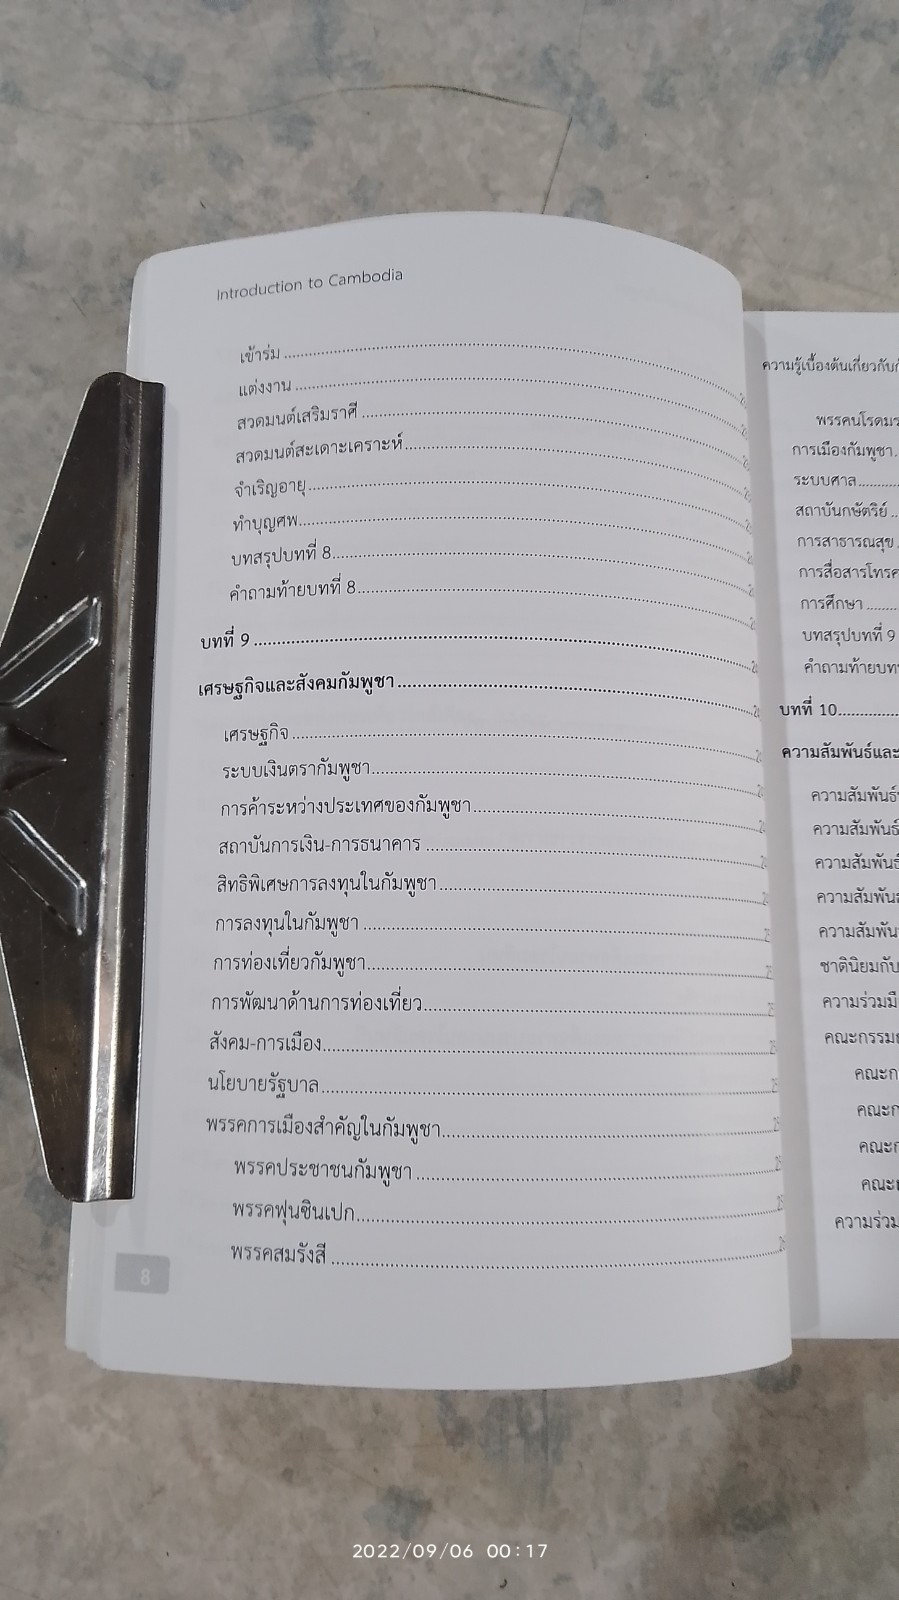 Introduction to Cambodia
เข้าร่ม
แต่งงาน
สวดมนต์เสริมราศี
สวดมนต์สะเดาะเคราะห์
จำเริญอายุ
ทำบุญศพ
บทสรุปบทที่ 8
คำถามท้ายบทที่ 8
บทที่ 9
เศรษฐกิจและสังคมกัมพูชา
เศรษฐกิจ
ระบบเงินตรากัมพูชา
การค้าระหว่างประเทศของกัมพูชา
สถาบันการเงิน-การธนาคาร
สิทธิพิเศษการลงทุนในกัมพูชา
การลงทุนในกัมพูชา
การท่องเที่ยวกัมพูชา
การพัฒนาด้านการท่องเที่ยว
สังคม-การเมือง
นโยบายรัฐบาล
พรรคการเมืองสำคัญในกัมพูชา
พรรคประชาชนกัมพูชา
พรรคฟุนซินเปก
พรรคสมรังสี
8
ความรู้เบื้องต้นเกี่ยวกับ
พรรคนโรดม
การเมืองกัมพูชา
ระบบศาล
สถาบันกษัตริย์
การสาธารณสุข
การสื่อสารโทร
การศึกษา
บทสรุปบทที่ 9
คำถามท้ายบท
บทที่ 10
ความสัมพันธ์และ
ความสัมพันธ์
ความสัมพันธ์
ความสัมพันธ์
ความสัมพัน
ความสัมพัน
ชาตินิยมกับ
ความร่วมมื
คณะกรรม
คณะก
คณะก
คณะก
คณะ
ความร่วม
2022/09/06 00:17